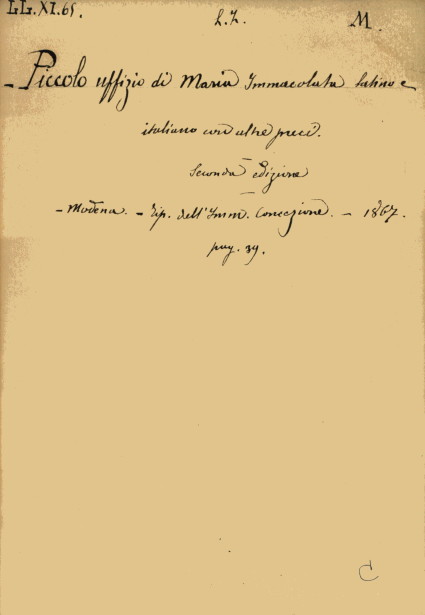 LL.XI.65. L.Z. M.
- Piccolo uffizio di Maria Immacolata latino e
italiano con altre preci.
Seconda edizione
- Modena. - Tip. dell'Imm. Concezione. - 1867.
pag. 39.
C